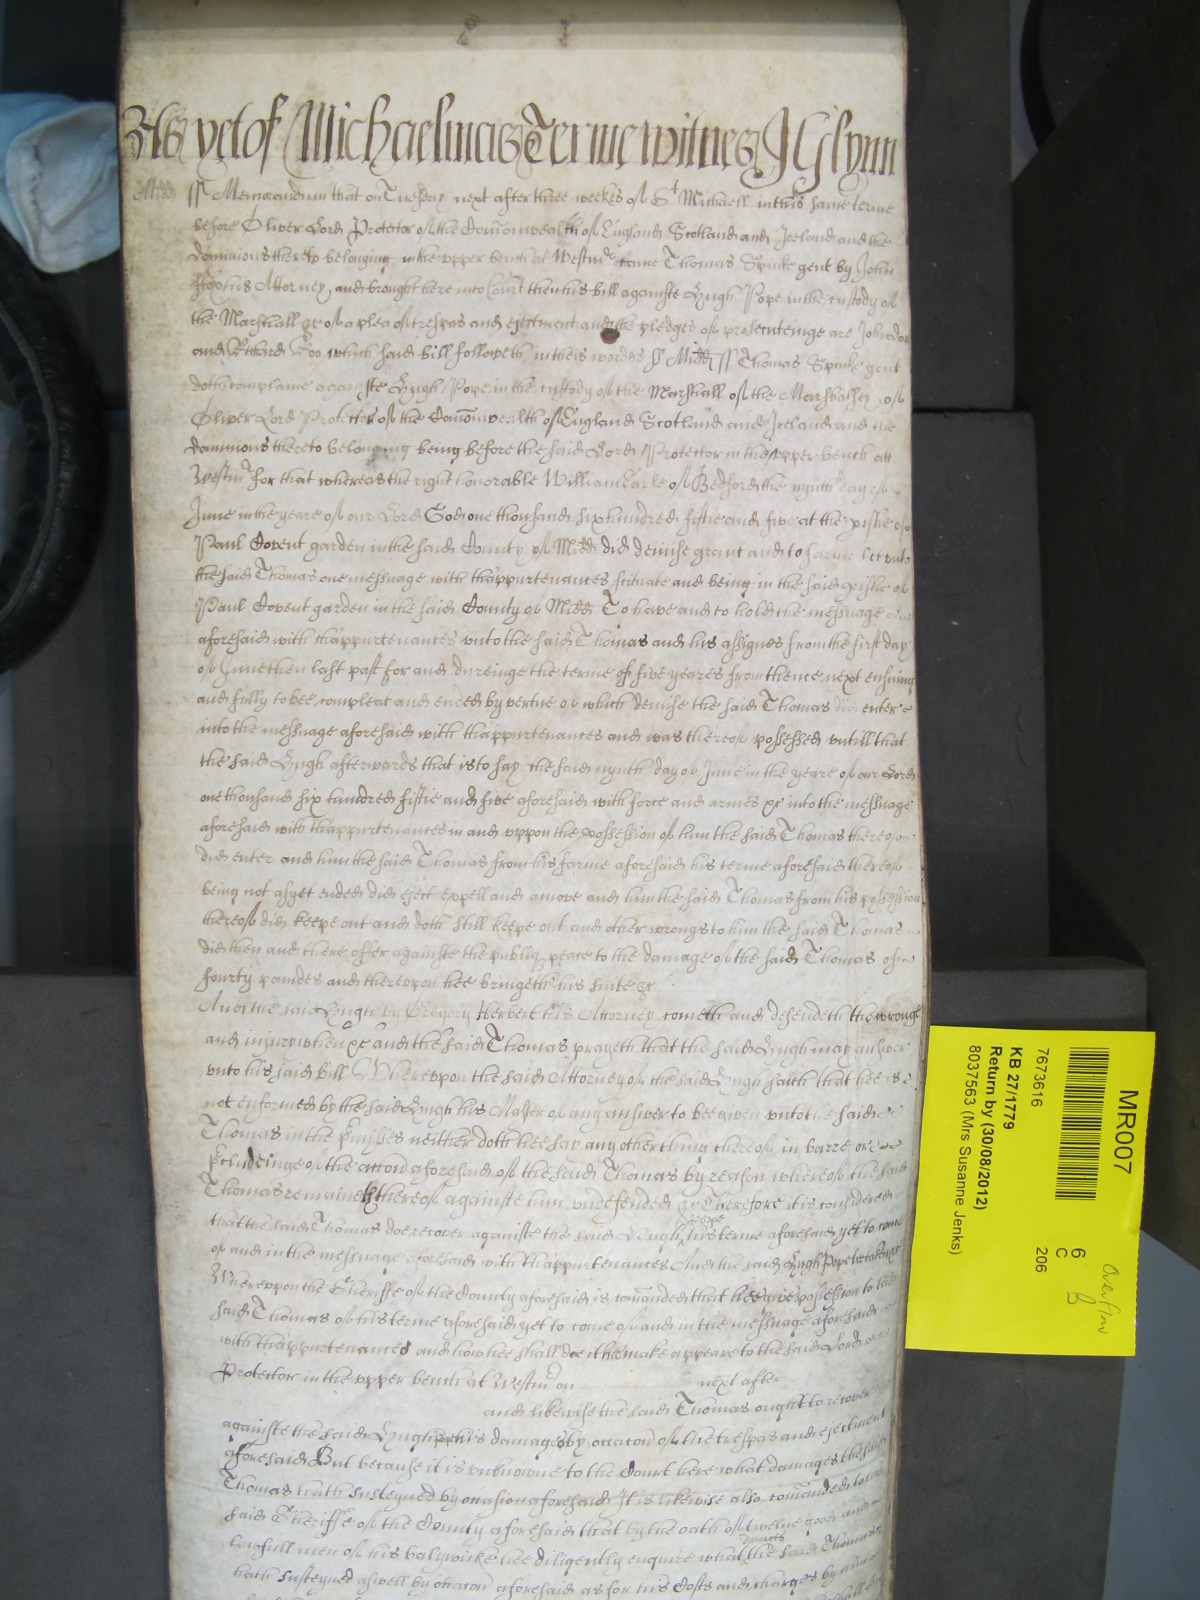 As yet of Michaelmas Terme witnes J Glynn
Midd ss Memorandum that on Tuesday next after three weekes of St Michaell in this same terme
before Oliver Lord Protector of the Comonwealth of England Scotland and Ireland and the
dominions thereto belonging in the upper bench at Westmr came Thomas Spinke gent by John
his Attorney, and brought here into Court then his bill againste Hugh Pope in the custody of
the Marshall &c of a plea of trespas and ejectment and the pledges of prosecuteinge are John Doo
and Richard Roo which said bill followeth in theis wordes ss Midd ss Thomas Spinke gent
doth complaine againste Hugh Pope in the custody of the Marshall of the Marshalsey of
Oliver Lord Protector of the Comonwealth of England Scotland and Ireland and the
dominions thereto belonging being before the said Lord Protector in the upper bench att
Westmr For that whereas the right honorable William Earle of Bedford the nynth day of
June in the yeare of our Lord God one thousand six hundred fiftie and five at the pishe of
Paul Covent garden in the said County of Midd did demise grant and to farme let unto
the said Thomas one messuage with thappurtenances scituate and being in the said pishe of
Paul Covent garden in the said County of Midd To have and to hold the messuage
aforesaid with thappurtenances unto the said Thomas and his assignes from the first day
of June then last past for and dureinge the terme of five yeares from thence next ensuing
and fully to bee compleat and ended by vertue of which demise the said Thomas did enter
into the messuage aforesaid with thappurtenances and was thereof possessed untill that
the said Hugh afterwards that is to say the said nynth day of June in the yeare of our Lord
one thousand six hundred fiftie and five aforesaid with force and armes &c into the messuage
aforesaid with thappurtenances in and uppon the possession of him the said Thomas thereof
did enter and him the said Thomas from his farme aforesaid his terme aforesaid thereof
being not as yet ended did eject expell and amove and him the said Thomas from his possession
thereof did keepe out and doth still keepe out and other wrongs to him the said Thomas
did then and there offer againste the publiq peace to the damage of the said Thomas of
fourty poundes and thereupon hee bringeth his suite &c
And the said Hugh by Gregory Herbert his Attorney cometh and defendeth the wronge
and injury when &c And the said Thomas prayeth that the said Hugh may answer
unto his said bill Whereupon the said Attorney of the said Hugh saith that hee is
not enformed by the said Hugh his Master of any answer to bee given unto the said
Thomas in the pmisses neither doth hee say any other thing thereof in barre or
pcludeinge of the accon aforesaid of the said Thomas by reason whereof the said
Thomas remaineth thereof againste him undefended &c Therefore it is considered
that the said Thomas doe recover againste the said Hugh Pope his terme aforesaid yet to come
of and in the messuage aforesaid with thappurtenances And the said Hugh Pope be taken &c
Whereuppon the Sheriffe of the County aforesaid is comanded that hee give possession to the
said Thomas of his terme aforesaid yet to come of and in the messuage aforesaid
with thappurtenances and how hee shall doe it he make appeare to the said Lord
Protector in the upper bench at Westmr on next after
and likewise the said Thomas ought to recover
againste the said Hugh his damages by occacon of the trespas and ejectment
aforesaid But because it is unknowne to the Court here what damages the said
Thomas hath susteyned by occasion aforesaid It is likewise also comanded to the
said Sheriffe of the County aforesaid that by the oath of twelve good and
lawfull men of his balywicke hee diligently enquire what damages the said Thomas
hath susteyned aswell by occacon aforesaid as for his Costs and charges by him
MR007
7673616
KB 27/1779
Return by (30/08/2012)
8037563 (Mrs Susanne Jenks)
6
C
206
Overflow